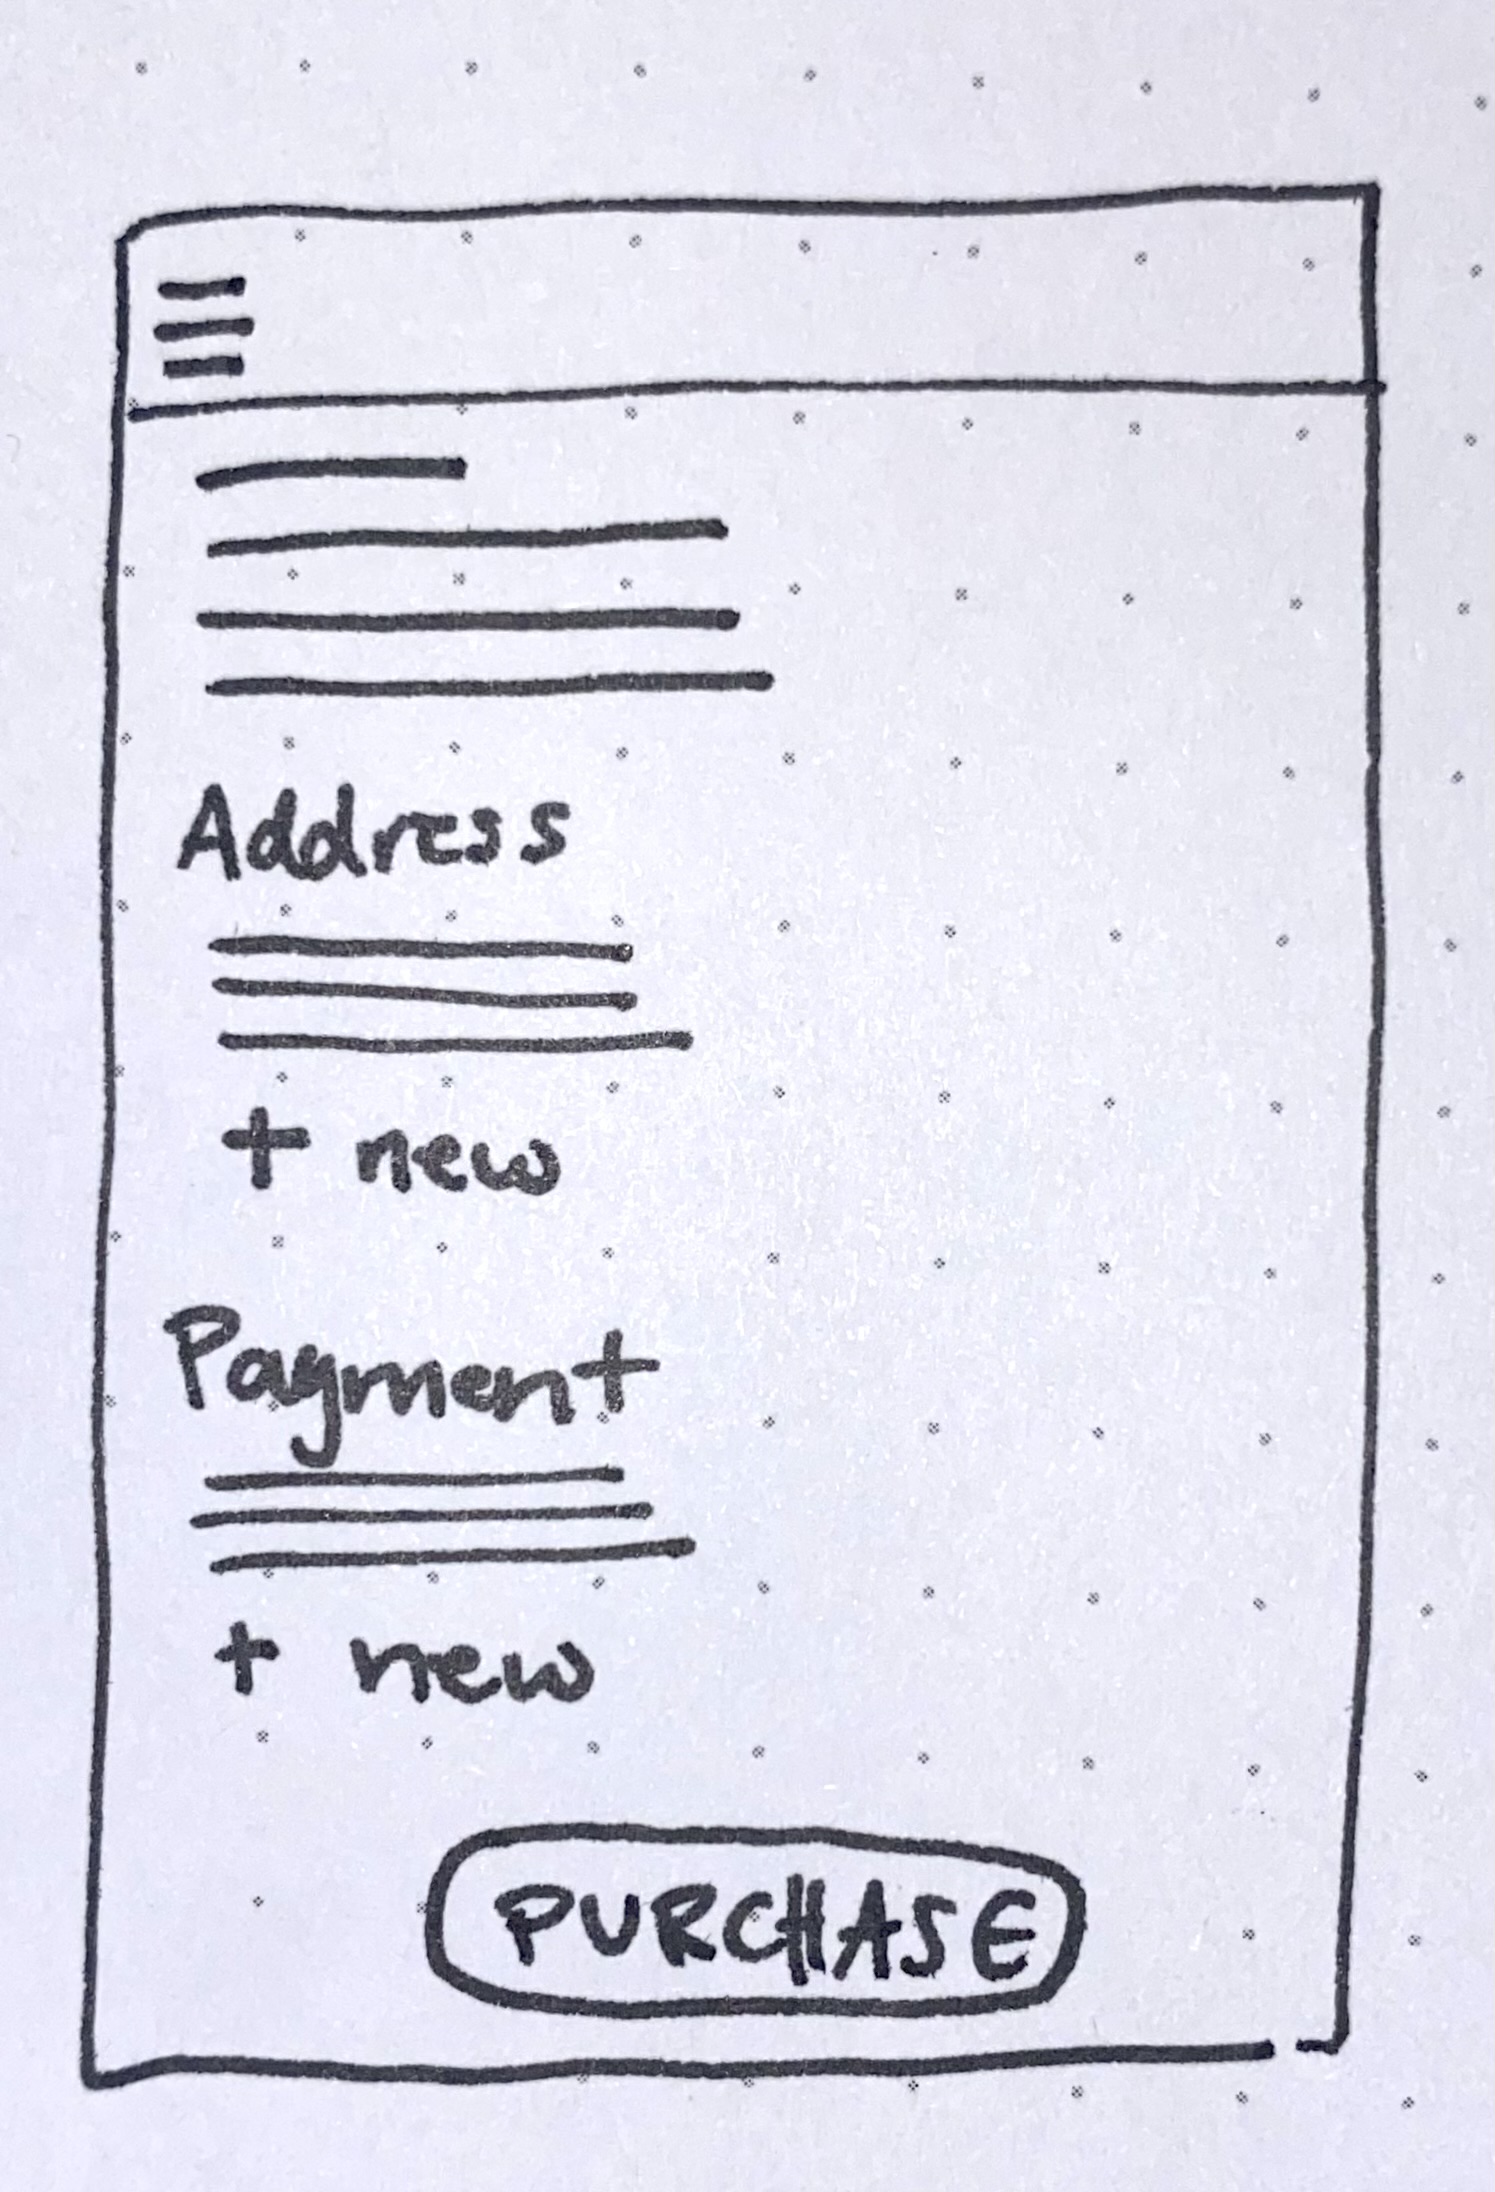 Address
+ new
Payment
+ new
PURCHASE